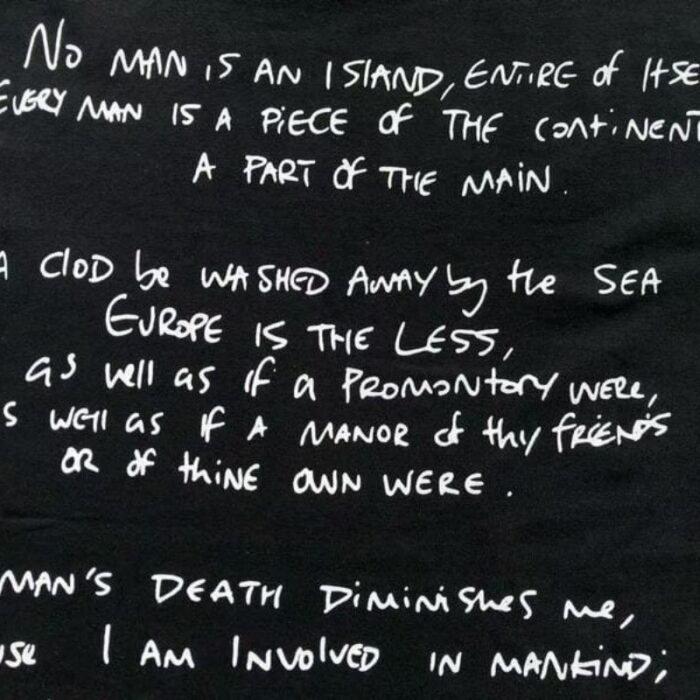 No MAN iS AN ISlAND, ENTiRE of ItSE
EVERY MAN IS A PiECE of THE CoNtiNENT
A PART OF THE MAIN.
A ClOD be WASHED AWAY by the SEA
EUROPE IS THE LESS,
as well as if a PROMONtORY WERE,
S WEll aS IF A MANOR of thy FRiEND'S
OR of thiNE OWN WERE.
MAN'S DEATH DiMiNiShes me,
use I AM INVolVED IN MANKiND;